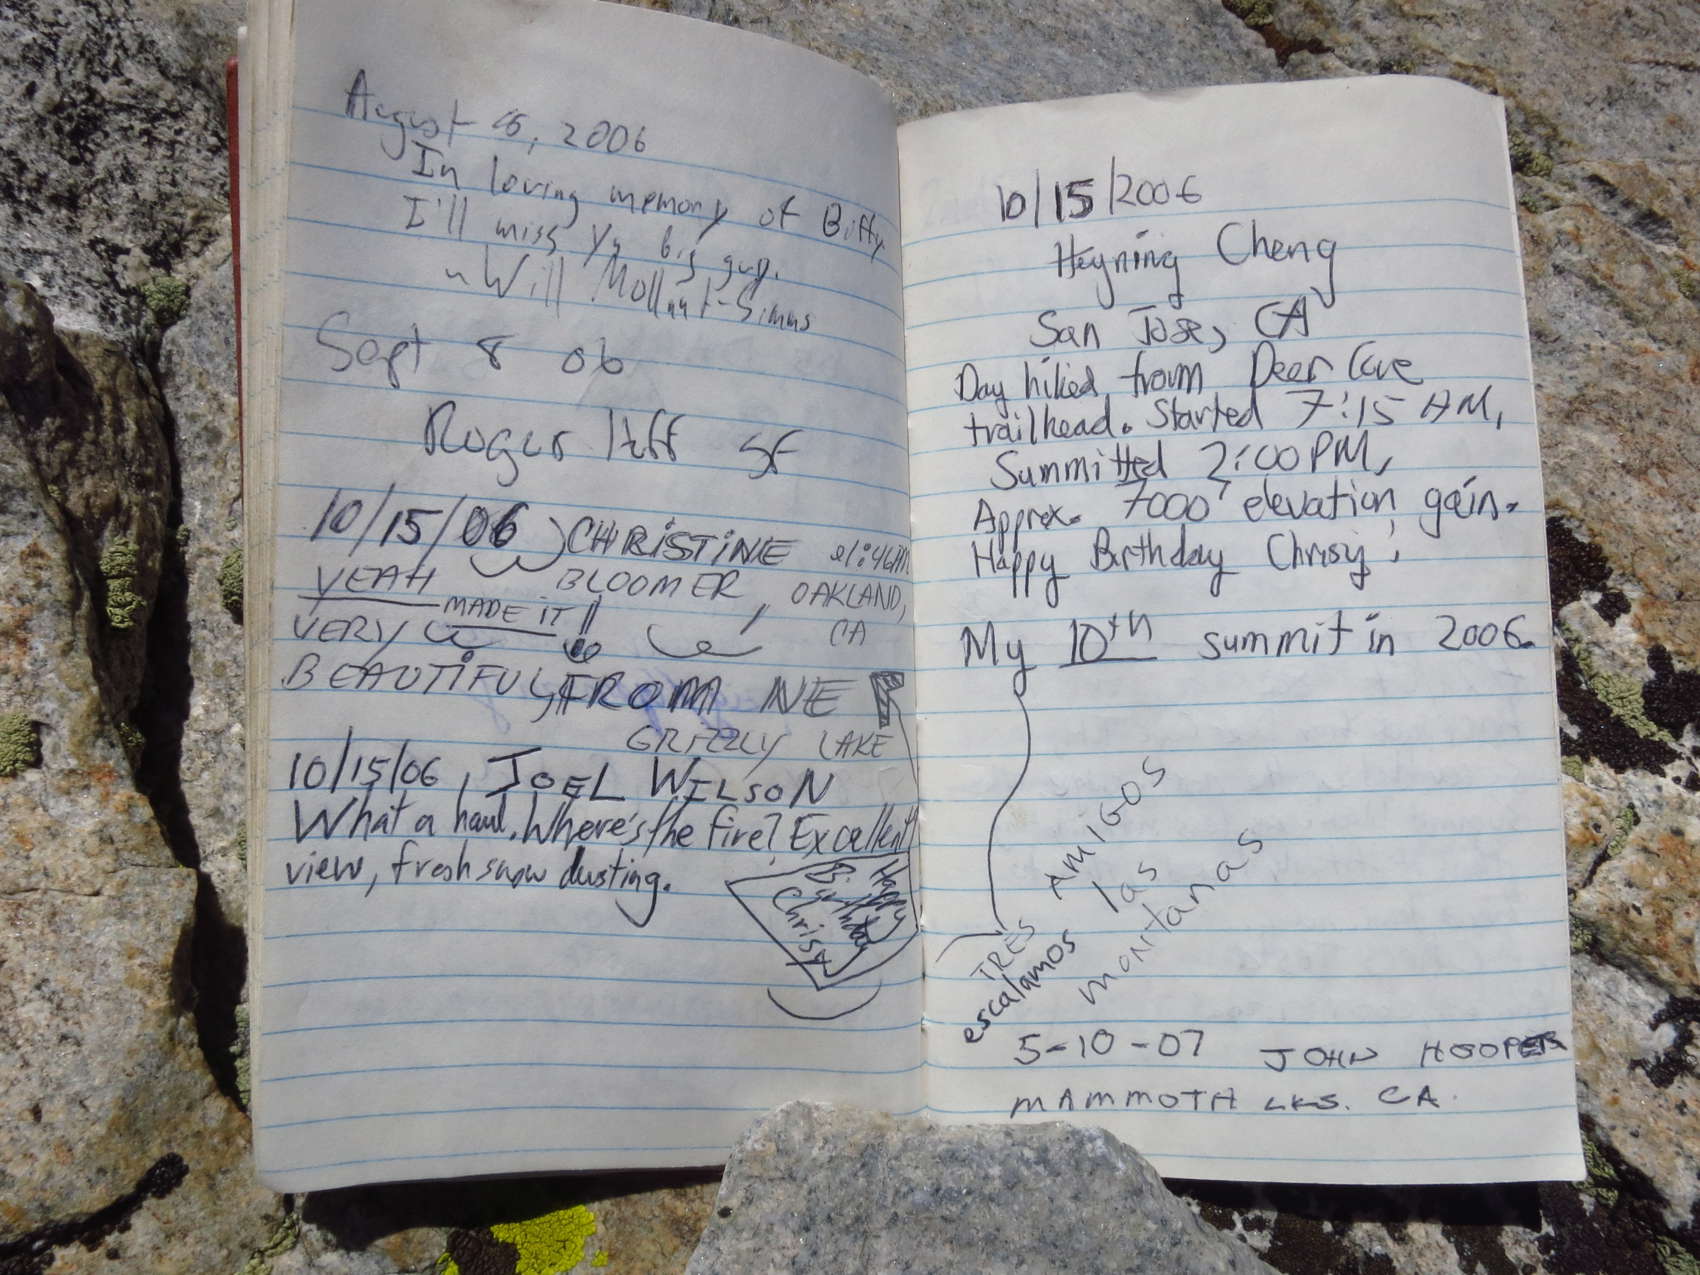 August 6, 2006
In loving memory of Biffy
I'll miss ya big guy.
~ Will Mollnut-Simms
Sept 8 06
Roger SF
10/15/06 CHRISTINE
YEAH BLOOMER, OAKLAND,
MADE IT!! CA
VERY
BEAUTIFUL, FROM NE
GRIZZLY LAKE
10/15/06, JOEL WILSON
What a haul. Where's the fire? Excellent
view, fresh snow dusting.
Happy
Birthday
Chrisy
10/15/2006
Heyning Cheng
San Jose, CA
Day hiked from Deer Cove
trailhead. Started 7:15 AM,
Summitted 2:00 PM,
Approx. 7000' elevation gain.
Happy Birthday Chrisy!
My 10th summit in 2006.
TRES AMIGOS
escalamos las
montanas
5-10-07 JOHN HOOPER
MAMMOTH LKS. CA.